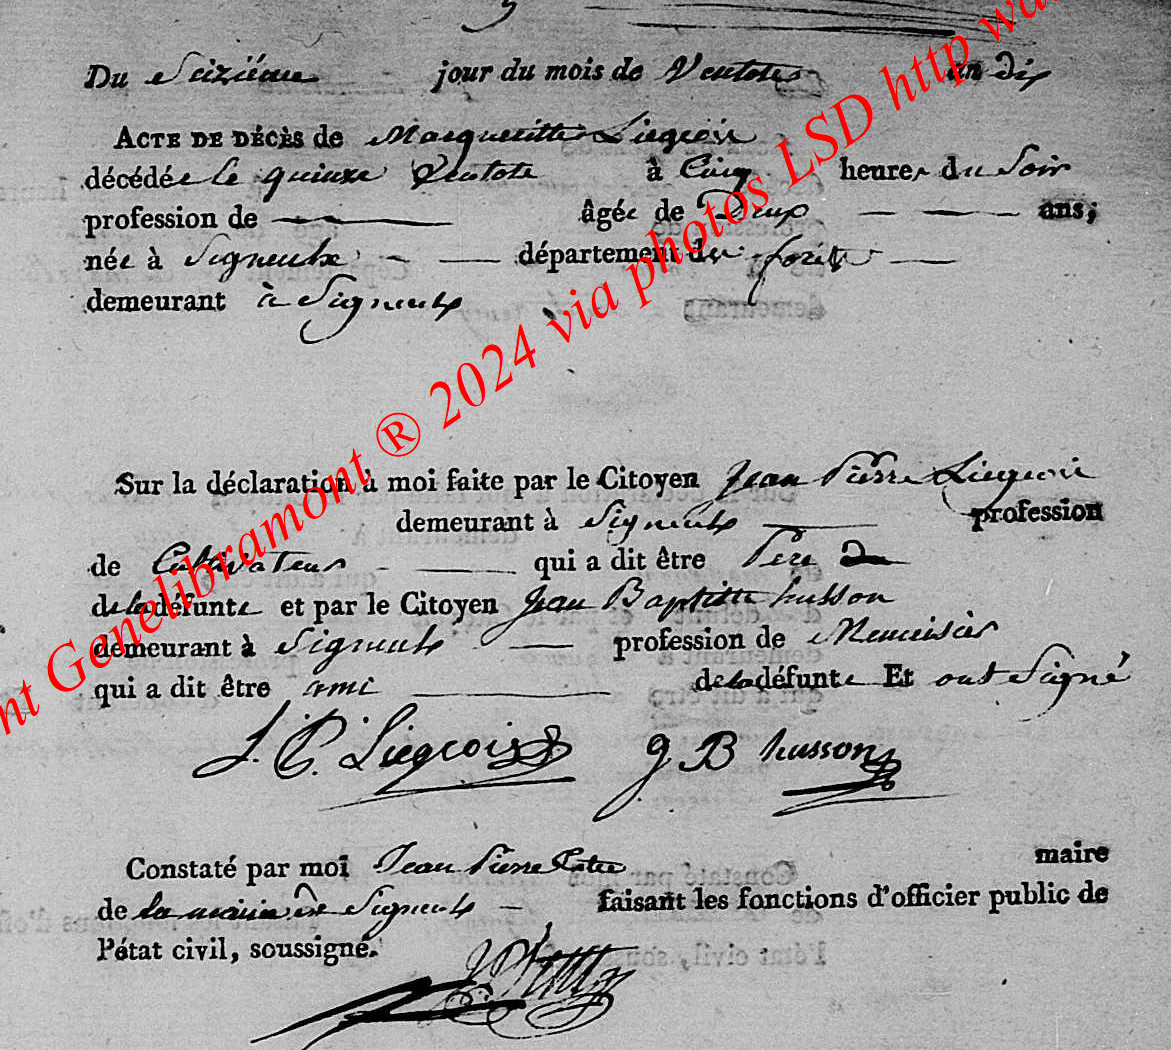 Du Seizième jour du mois de Ventose an dix
ACTE DE DÉCÈS de Margueritte Liegeois
décédée le quinze Ventose à Cinq heures du Soir
profession de âgée de Deux ans;
née à Signeulx département des forêts
demeurant à Signeulx
Sur la déclaration à moi faite par le Citoyen Jean Pierre Liegeois
demeurant à Signeulx profession
de Cultivateur qui a dit être Père
de la défunte et par le Citoyen Jean Baptiste husson
demeurant à Signeulx profession de Menuisier
qui a dit être ami de la défunte Et ont Signé
J. P. Liegeois J B husson
Constaté par moi Jean Pierre maire
de la mairie de Signeulx faisant les fonctions d'officier public de
l'état civil, soussigné.
nt Genelibramont ® 2024 via photos LSD http wa